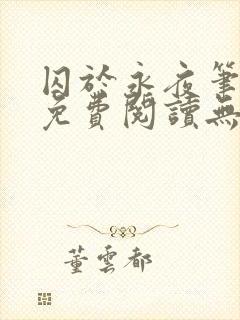 囚於永夜筆
免費閱讀無
董雲都